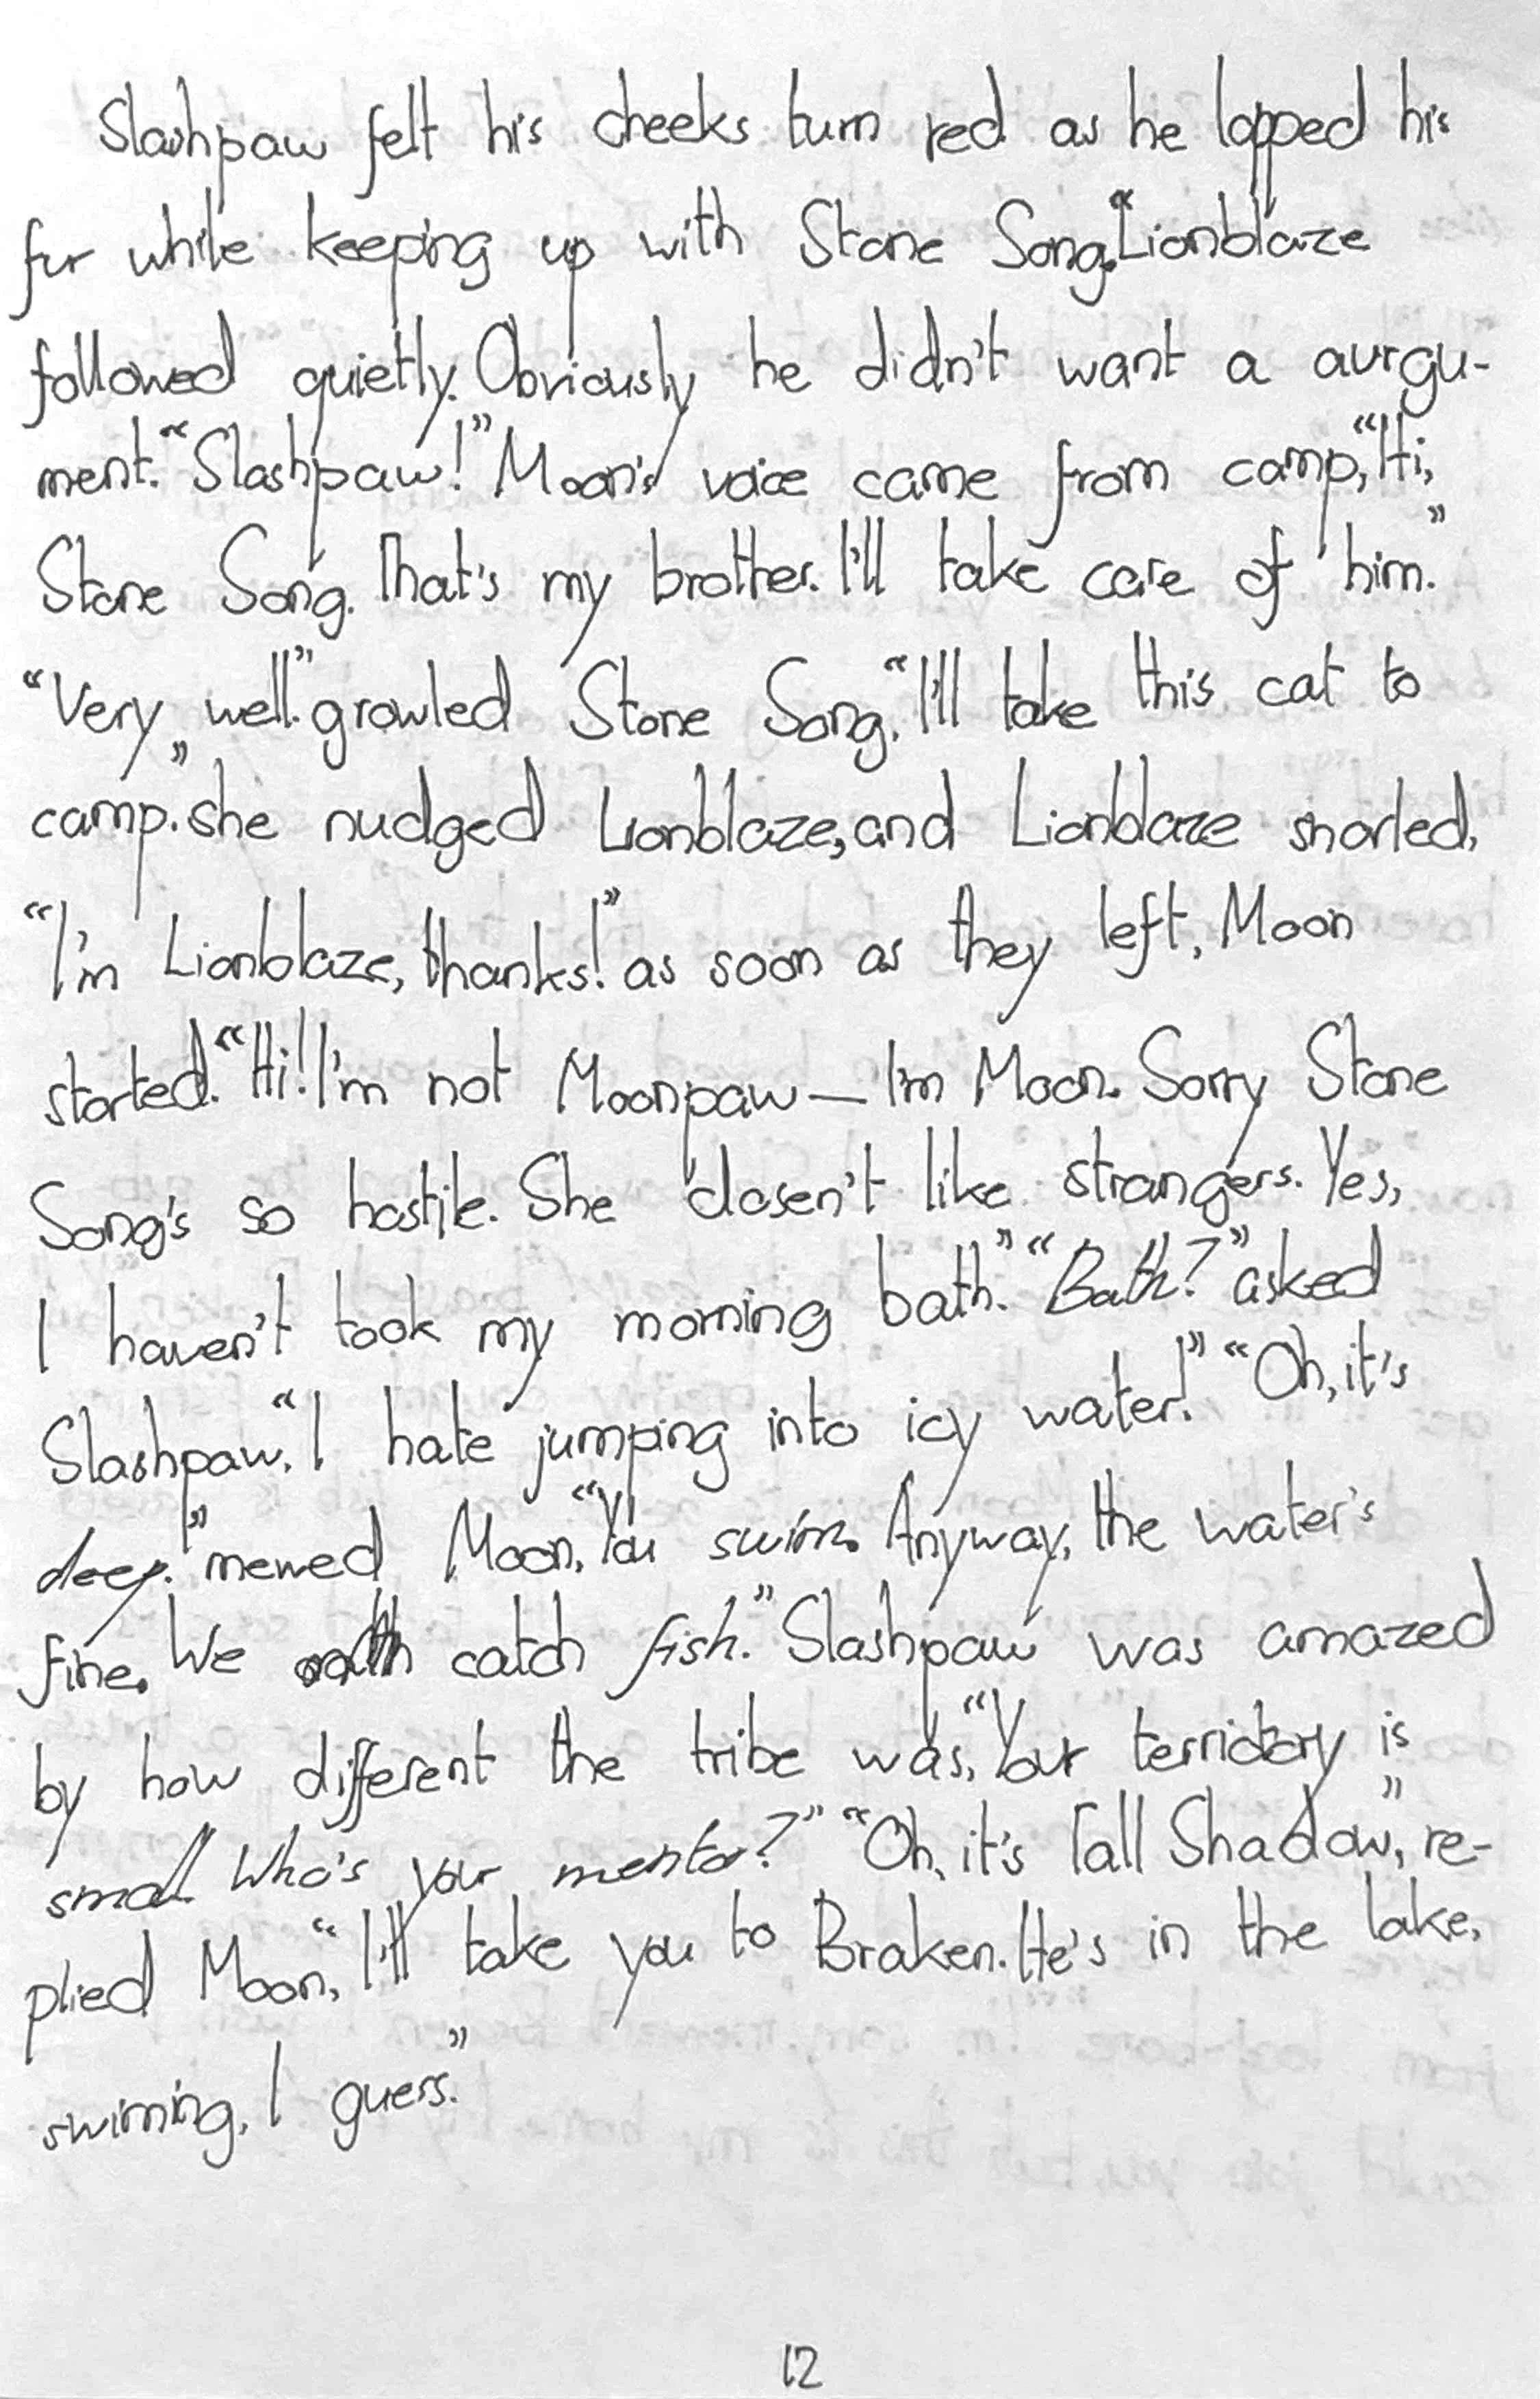 Slashpaw felt his cheeks turn red as he lopped his
fur while keeping up with Stone Song.“Lionblaze
followed quietly. Obviously he didn't want a aurgu-
ment.“Slashpaw!” Moon's voice came from camp,“Hi,
Stone Song. That's my brother. I'll take care of him.”
“Very well.” growled Stone Song,“I'll take this cat to
camp.” she nudged Lionblaze, and Lionblaze snarled,
“I'm Lionblaze, thanks!” as soon as they left, Moon
started.“Hi! I'm not Moonpaw — I'm Moon. Sorry Stone
Song's so hostile. She dosen't like strangers. Yes,
I haven't took my morning bath.” “Bath?” asked
Slashpaw,“I hate jumping into icy water!” “Oh, it's
deep!” mewed Moon,“You swim. Anyway, the water's
fine. We catch fish.” Slashpaw was amazed
by how different the tribe was,“Your terridory is
small. Who's your mentor?” “Oh, it's Tall Shadow”, re-
plied Moon,“I'll take you to Braken. He's in the lake,
swiming, I guess.”
12